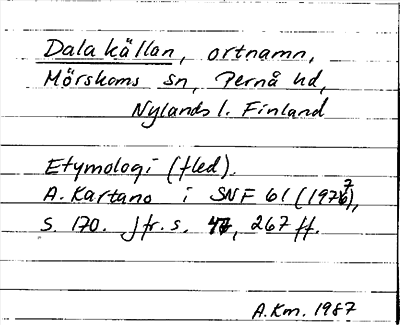 Dalakällan, ortnamn,
Mörskoms sn, Pernå hd,
Nylands l. Finland
Etymologi (fled).
A. Kartano i SNF 61 (1977),
s. 170. Jfr. s. 47, 267 ff.
A.Km. 1987